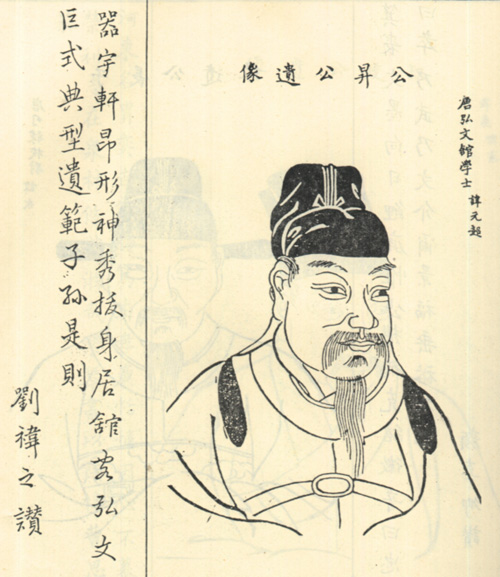 唐弘文館學士 諱元超
公昇公遺像
器宇軒昂形神秀拔身居舘客弘文
巨式典型遺範子孫是則
劉禕之讚